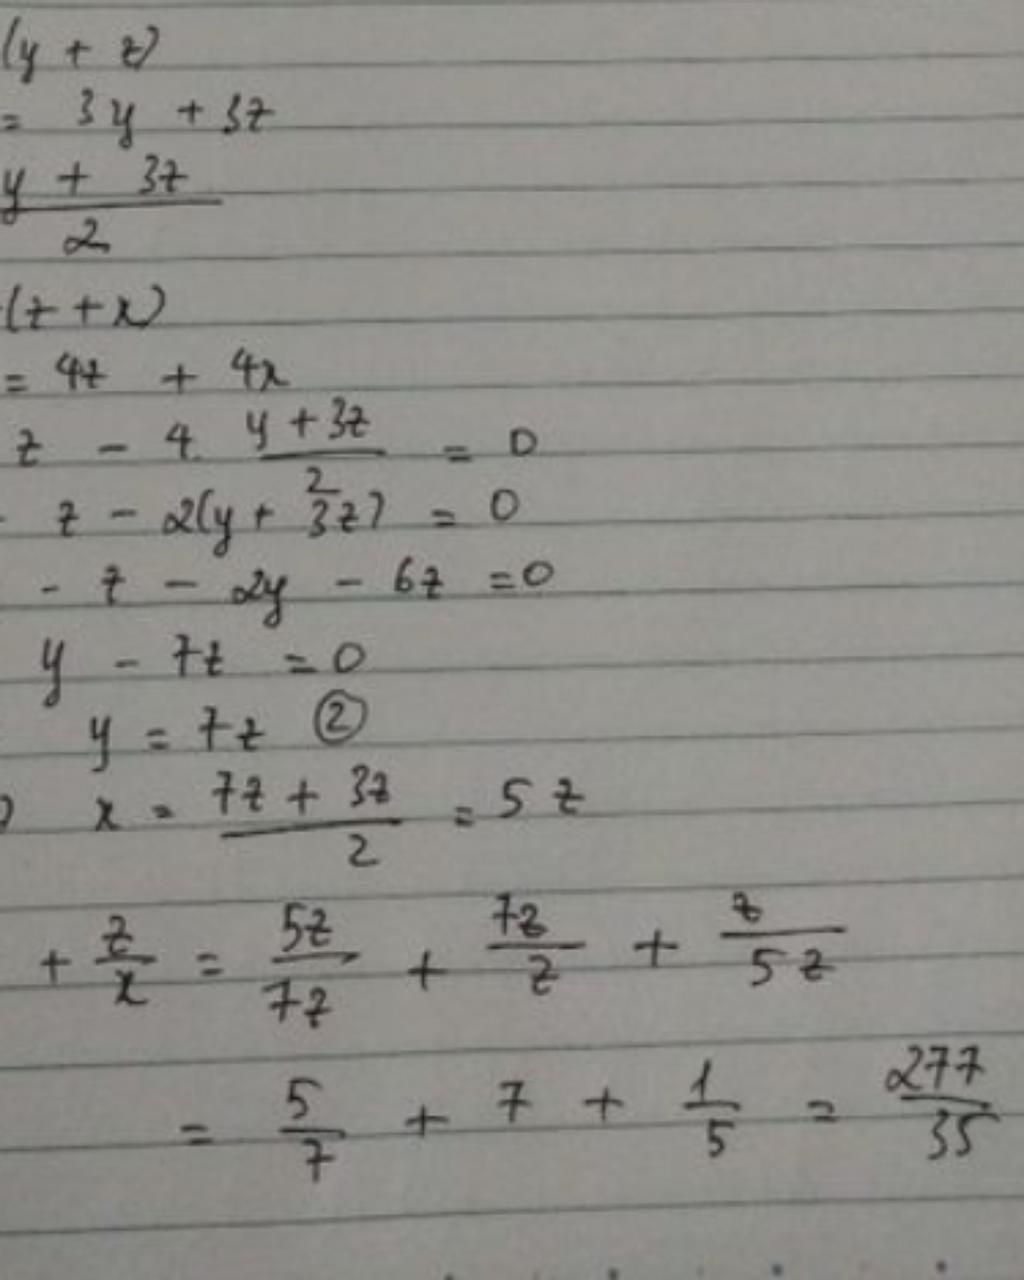 (y + z)
= 3y + 3z
y + 3z / 2
(z + x)
= 4z + 4x
z - 4. y + 3z / 2 = 0
- z - 2(y + 3z) = 0
- z - 2y - 6z = 0
y - 7z = 0
y = 7z ②
) x = 7z + 3z / 2 = 5z
+ z/x = 5z/7z + 7z/z + z/5z
= 5/7 + 7 + 1/5 = 277/35